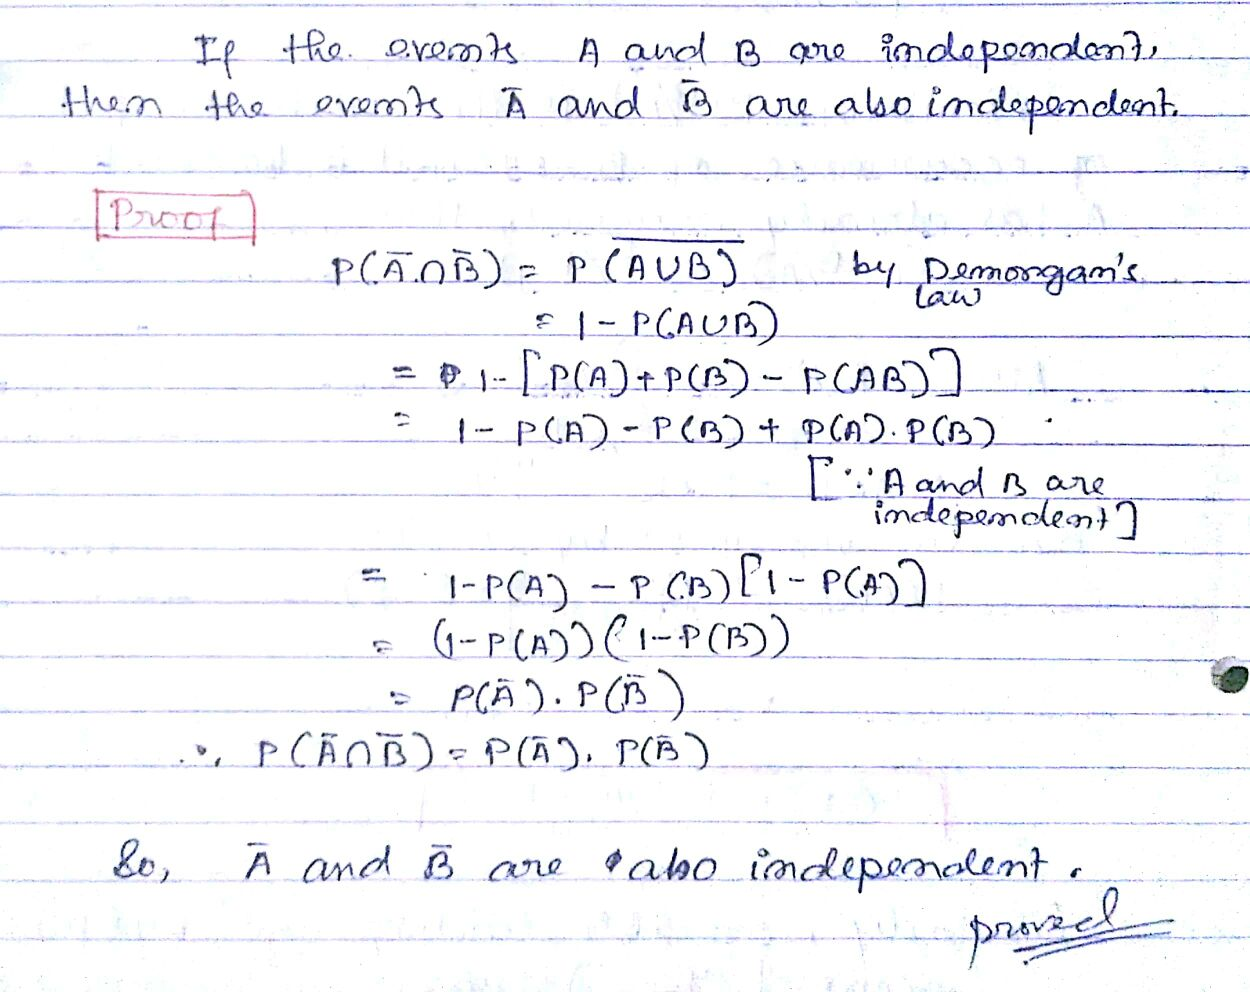 If the events A and B are independent,
then the events Ā and B̄ are also independent.
Proof
P(Ā∩B̄) = P(A∪B)‾ by Demorgan's
law
= 1 - P(A∪B)
= 1 - [P(A) + P(B) - P(AB)]
= 1 - P(A) - P(B) + P(A). P(B)
[∵ A and B are
independent]
= 1 - P(A) - P(B) [1 - P(A)]
= (1 - P(A)) (1 - P(B))
= P(Ā). P(B̄)
∴ P(Ā∩B̄) = P(Ā). P(B̄)
So, Ā and B̄ are also independent.
proved